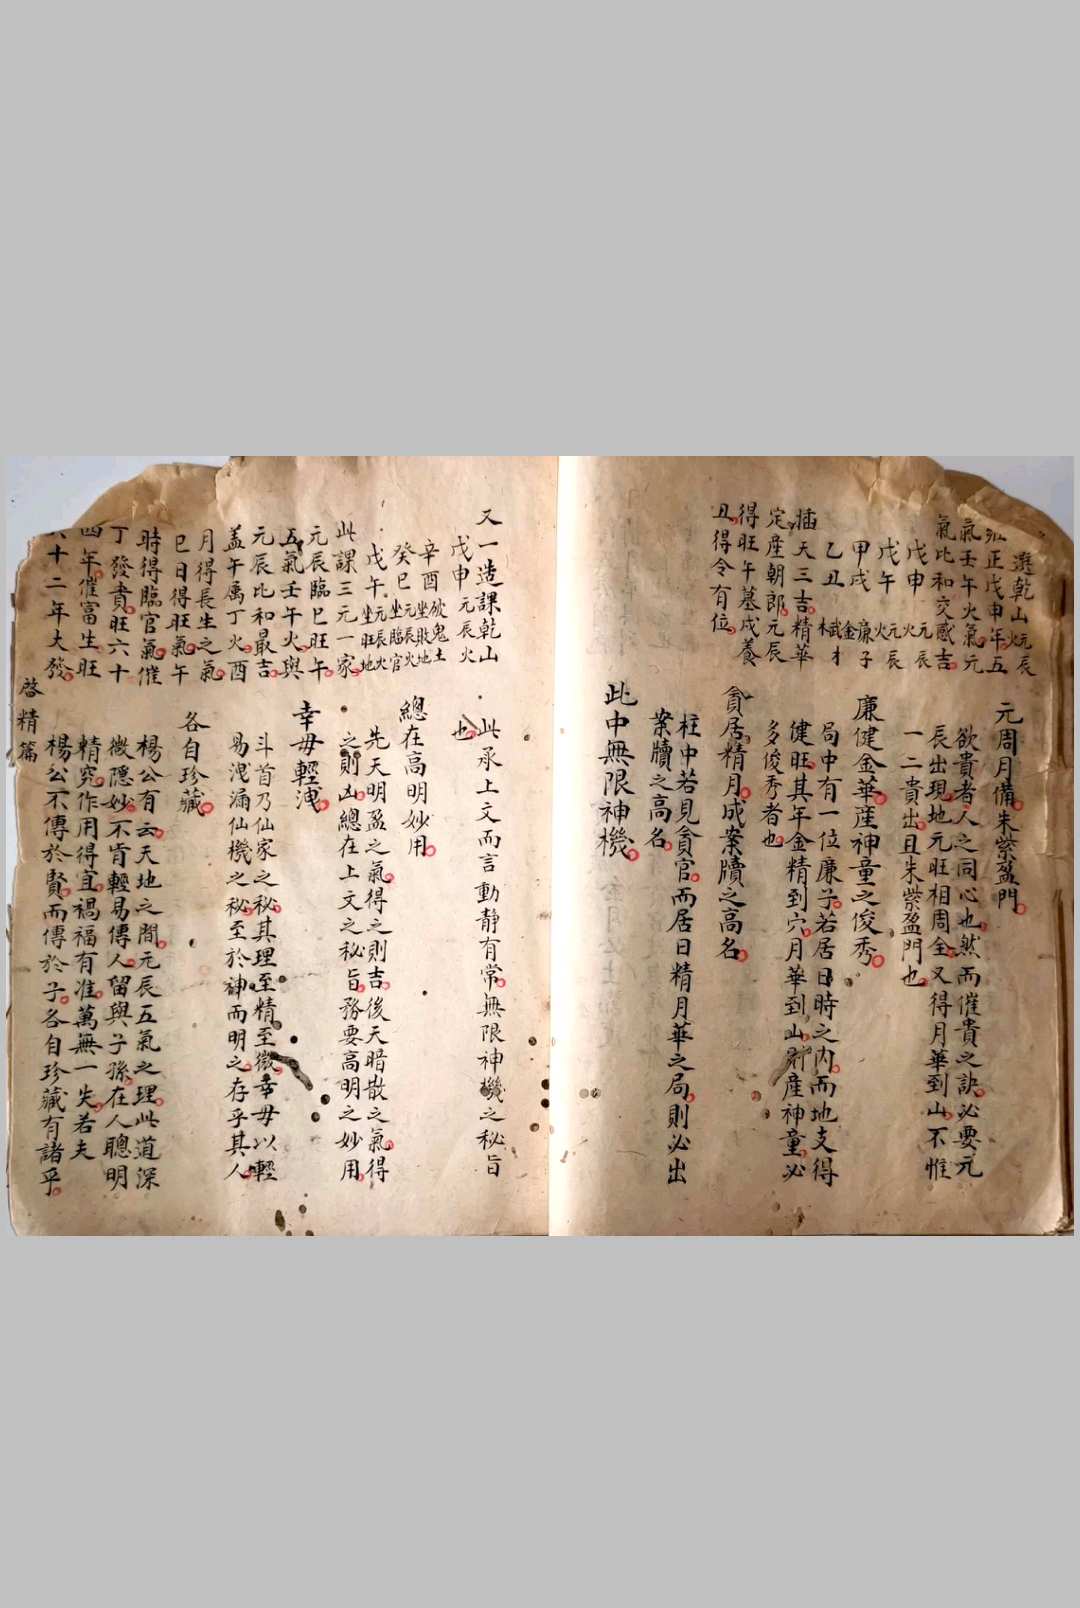 元周月備朱紫盈門
欲貴者人之同心也然而催貴之訣必要元
辰出現地元旺相周全又得月華到山不惟
一二貴出且朱紫盈門也
廉健金華産神童之俊秀
局中有一位廉子若居日時之内而地支得
健旺其年金精到穴月華到山財産神童必
多俊秀者也
貪居精月成案牘之高名
柱中若見貪官而居日精月華之局則必出
案牘之高名
此中無限神機
選乾山火元辰
正戊申年五
氣壬午火氣元
氣比和交感吉
戊申 元辰火
戊午 元辰火
甲戌 廉子金
乙丑 武才木
插天三吉精華
定産朝郎元辰
得旺午墓戌養
丑得令有位
此承上文而言動静有常無限神機之秘旨
也
總在高明妙用
先天明盈之氣得之則吉後天暗散之氣得
之則凶總在上文之秘旨務要高明之妙用
幸毋輕洩
斗首乃仙家之秘其理至精至微幸毋以輕
易洩漏仙機之秘至於神而明之存乎其人
各自珍藏
楊公有云天地之間元辰五氣之理此道深
微隱妙不肯輕易傳人留與子孫在人聰明
精究作用得宜禍福有准萬無一失若夫
楊公不傳於賢而傳於子各自珍藏有諸乎
又一造課乾山
戊申 元辰火
辛酉 破鬼土坐敗地
癸巳 元辰火坐臨官
戊午 元辰火坐旺地
此課三元一家
元辰臨巳旺午
五氣壬午火與
元辰比和最吉
盖午属丁火酉
月得長生之氣
巳日得旺氣午
時得臨官氣催
丁發貴旺六十
四年催富生旺
十二年大發
啓精篇